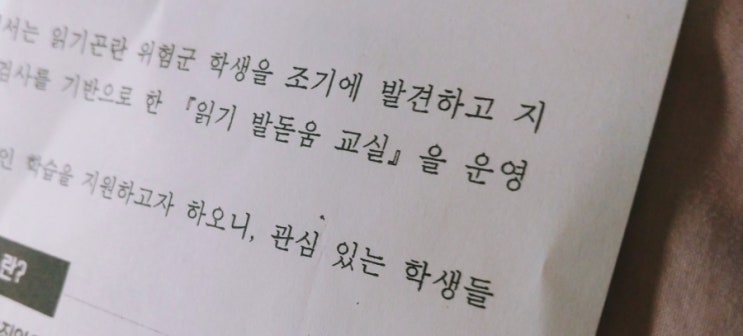 서는 읽기곤란 위험군 학생을 조기에 발견하고 지
검사를 기반으로 한 『읽기 발돋움 교실』을 운영
인 학습을 지원하고자 하오니, 관심 있는 학생들
란?